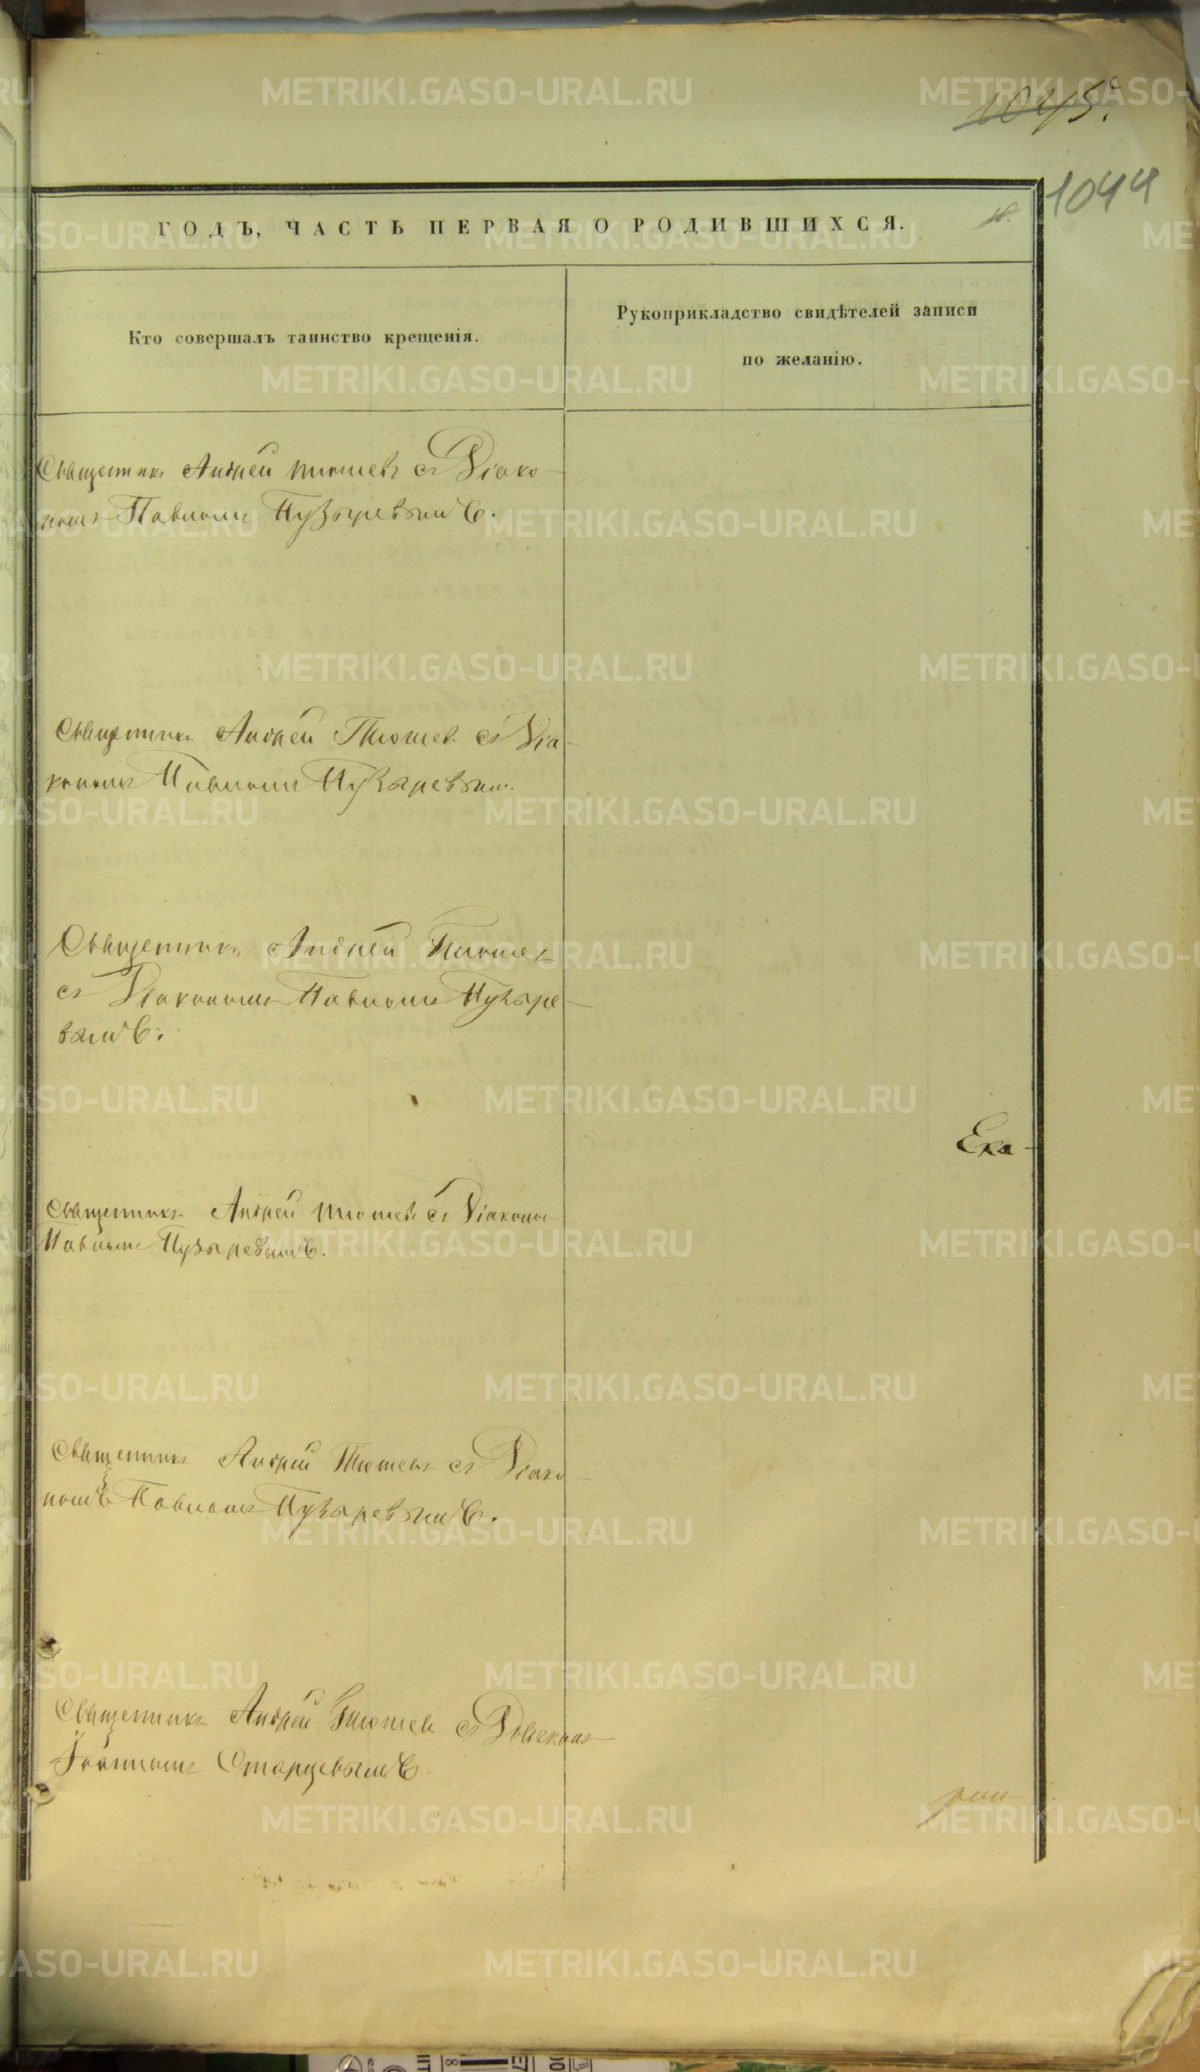 1045.
1044
ГОДЪ, ЧАСТЬ ПЕРВАЯ О РОДИВШИХСЯ.
Кто совершалъ таинство крещенія.
Рукоприкладство свидѣтелей записи
по желанію.
Священникъ Андрей Тюшевъ съ Діако-
номъ Павломъ Пузыревымъ.
Священникъ Андрей Тюшевъ съ Діа-
кономъ Павломъ Пузыревым.
Священникъ Андрей Тюшевъ
съ Діакономъ Павломъ Пузыре-
вымъ.
Ека-
Священникъ Андрей Тюшевъ съ Діакономъ
Павломъ Пузыревымъ.
Священникъ Андрей Тюшевъ съ Діако-
номъ Павломъ Пузыревымъ.
Священникъ Андрей Тюшевъ съ
Іоанномъ Старцевымъ
METRIKI.GASO-URAL.RU